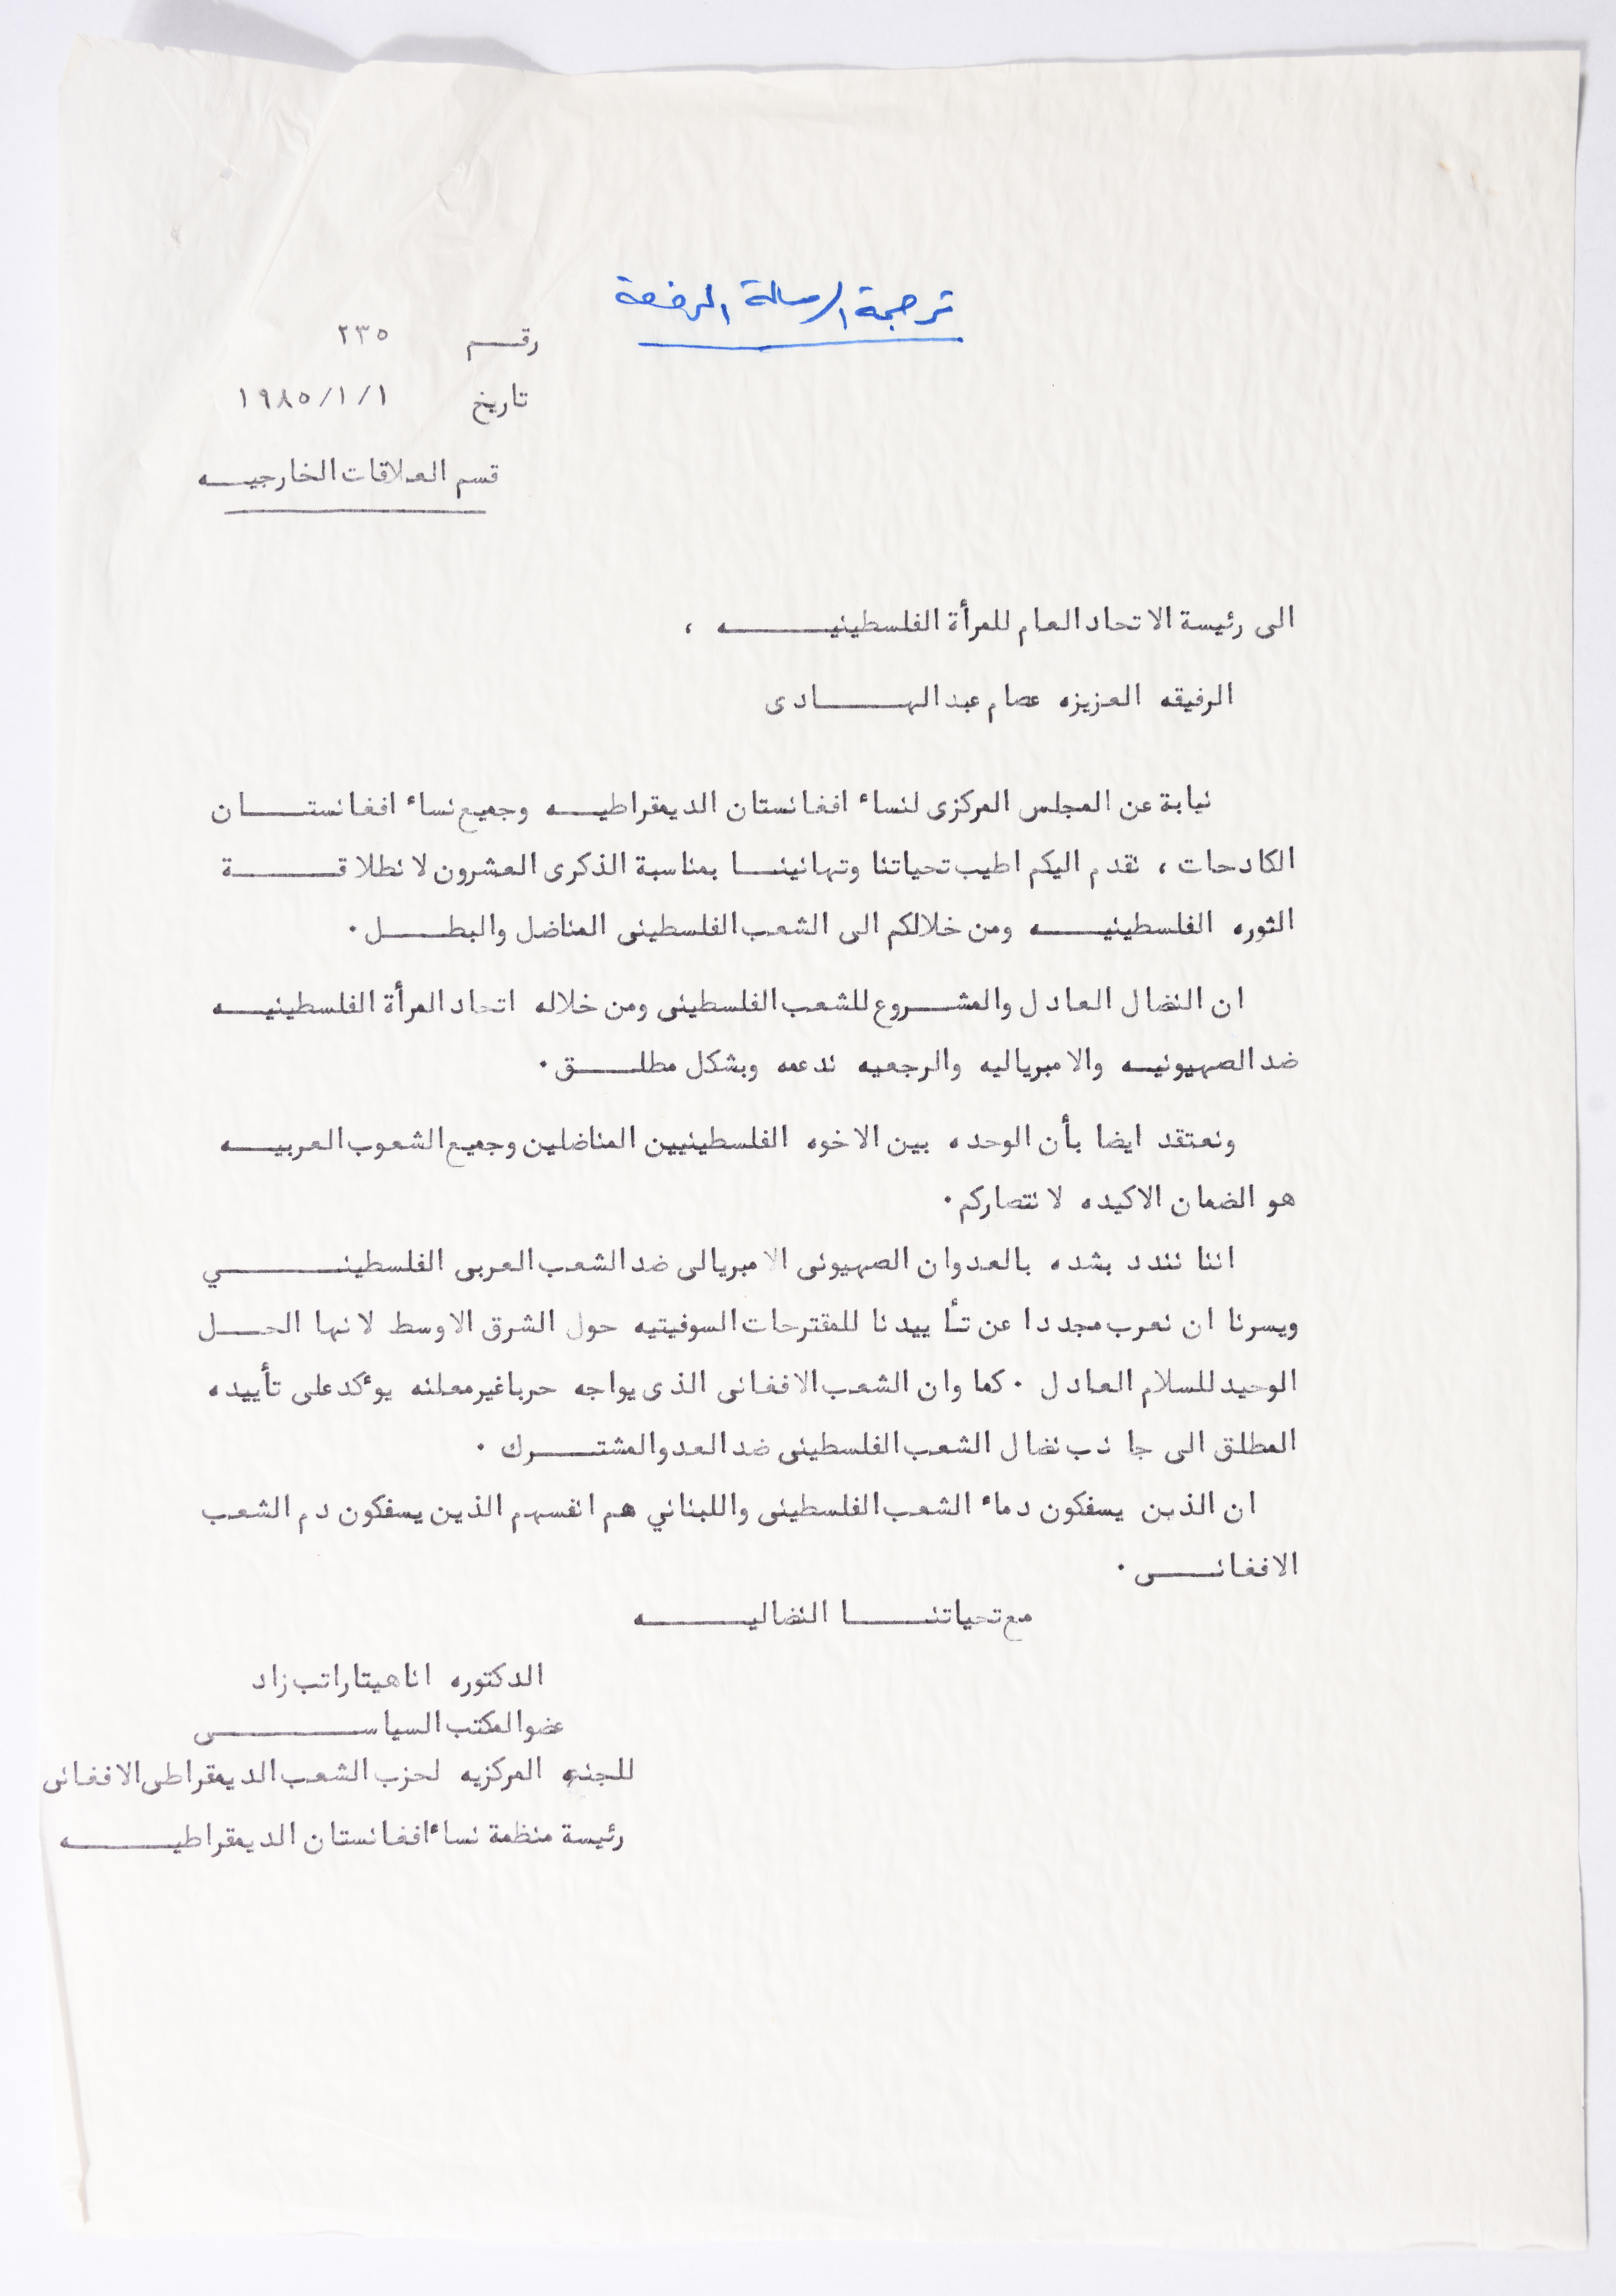 ترجمة الرسالة المرفقة
رقم ٢٣٥
تاريخ ١٩٨٥/١/١
قسم العلاقات الخارجيه
الى رئيسة الاتحاد العام للمرأة الفلسطينيه ،
الرفيقه العزيزه عصام عبد الهادى
نيابة عن المجلس المركزى لنساء افغانستان الديمقراطيه وجميع نساء افغانستان
الكادحات ، نقدم اليكم اطيب تحياتنا وتهانينا بمناسبة الذكرى العشرون لانطلاقة
الثوره الفلسطينيه ومن خلالكم الى الشعب الفلسطينى المناضل والبطل .
ان النضال العادل والمشروع للشعب الفلسطينى ومن خلاله اتحاد المرأة الفلسطينيه
ضد الصهيونيه والامبرياليه والرجعيه ندعمه وبشكل مطلق .
ونعتقد ايضا بأن الوحده بين الاخوه الفلسطينيين المناضلين وجميع الشعوب العربيه
هو الضمان الاكيده لانتصاركم .
اننا نندد بشده بالعدوان الصهيونى الامبريالى ضد الشعب العربى الفلسطيني
ويسرنا ان نعرب مجددا عن تأييدنا للمقترحات السوفيتيه حول الشرق الاوسط لانها الحل
الوحيد للسلام العادل . كما وان الشعب الافغانى الذى يواجه حربا غير معلنه يوءكد على تأييده
المطلق الى جانب نضال الشعب الفلسطينى ضد العدو المشترك .
ان الذين يسفكون دماء الشعب الفلسطينى واللبناني هم انفسهم الذين يسفكون دم الشعب
الافغانى .
مع تحياتنا النضاليه
الدكتوره اناهيتا راتب زاد
عضو المكتب السياسى
للجنه المركزيه لحزب الشعب الديمقراطى الافغانى
رئيسة منظمة نساء افغانستان الديمقراطيه